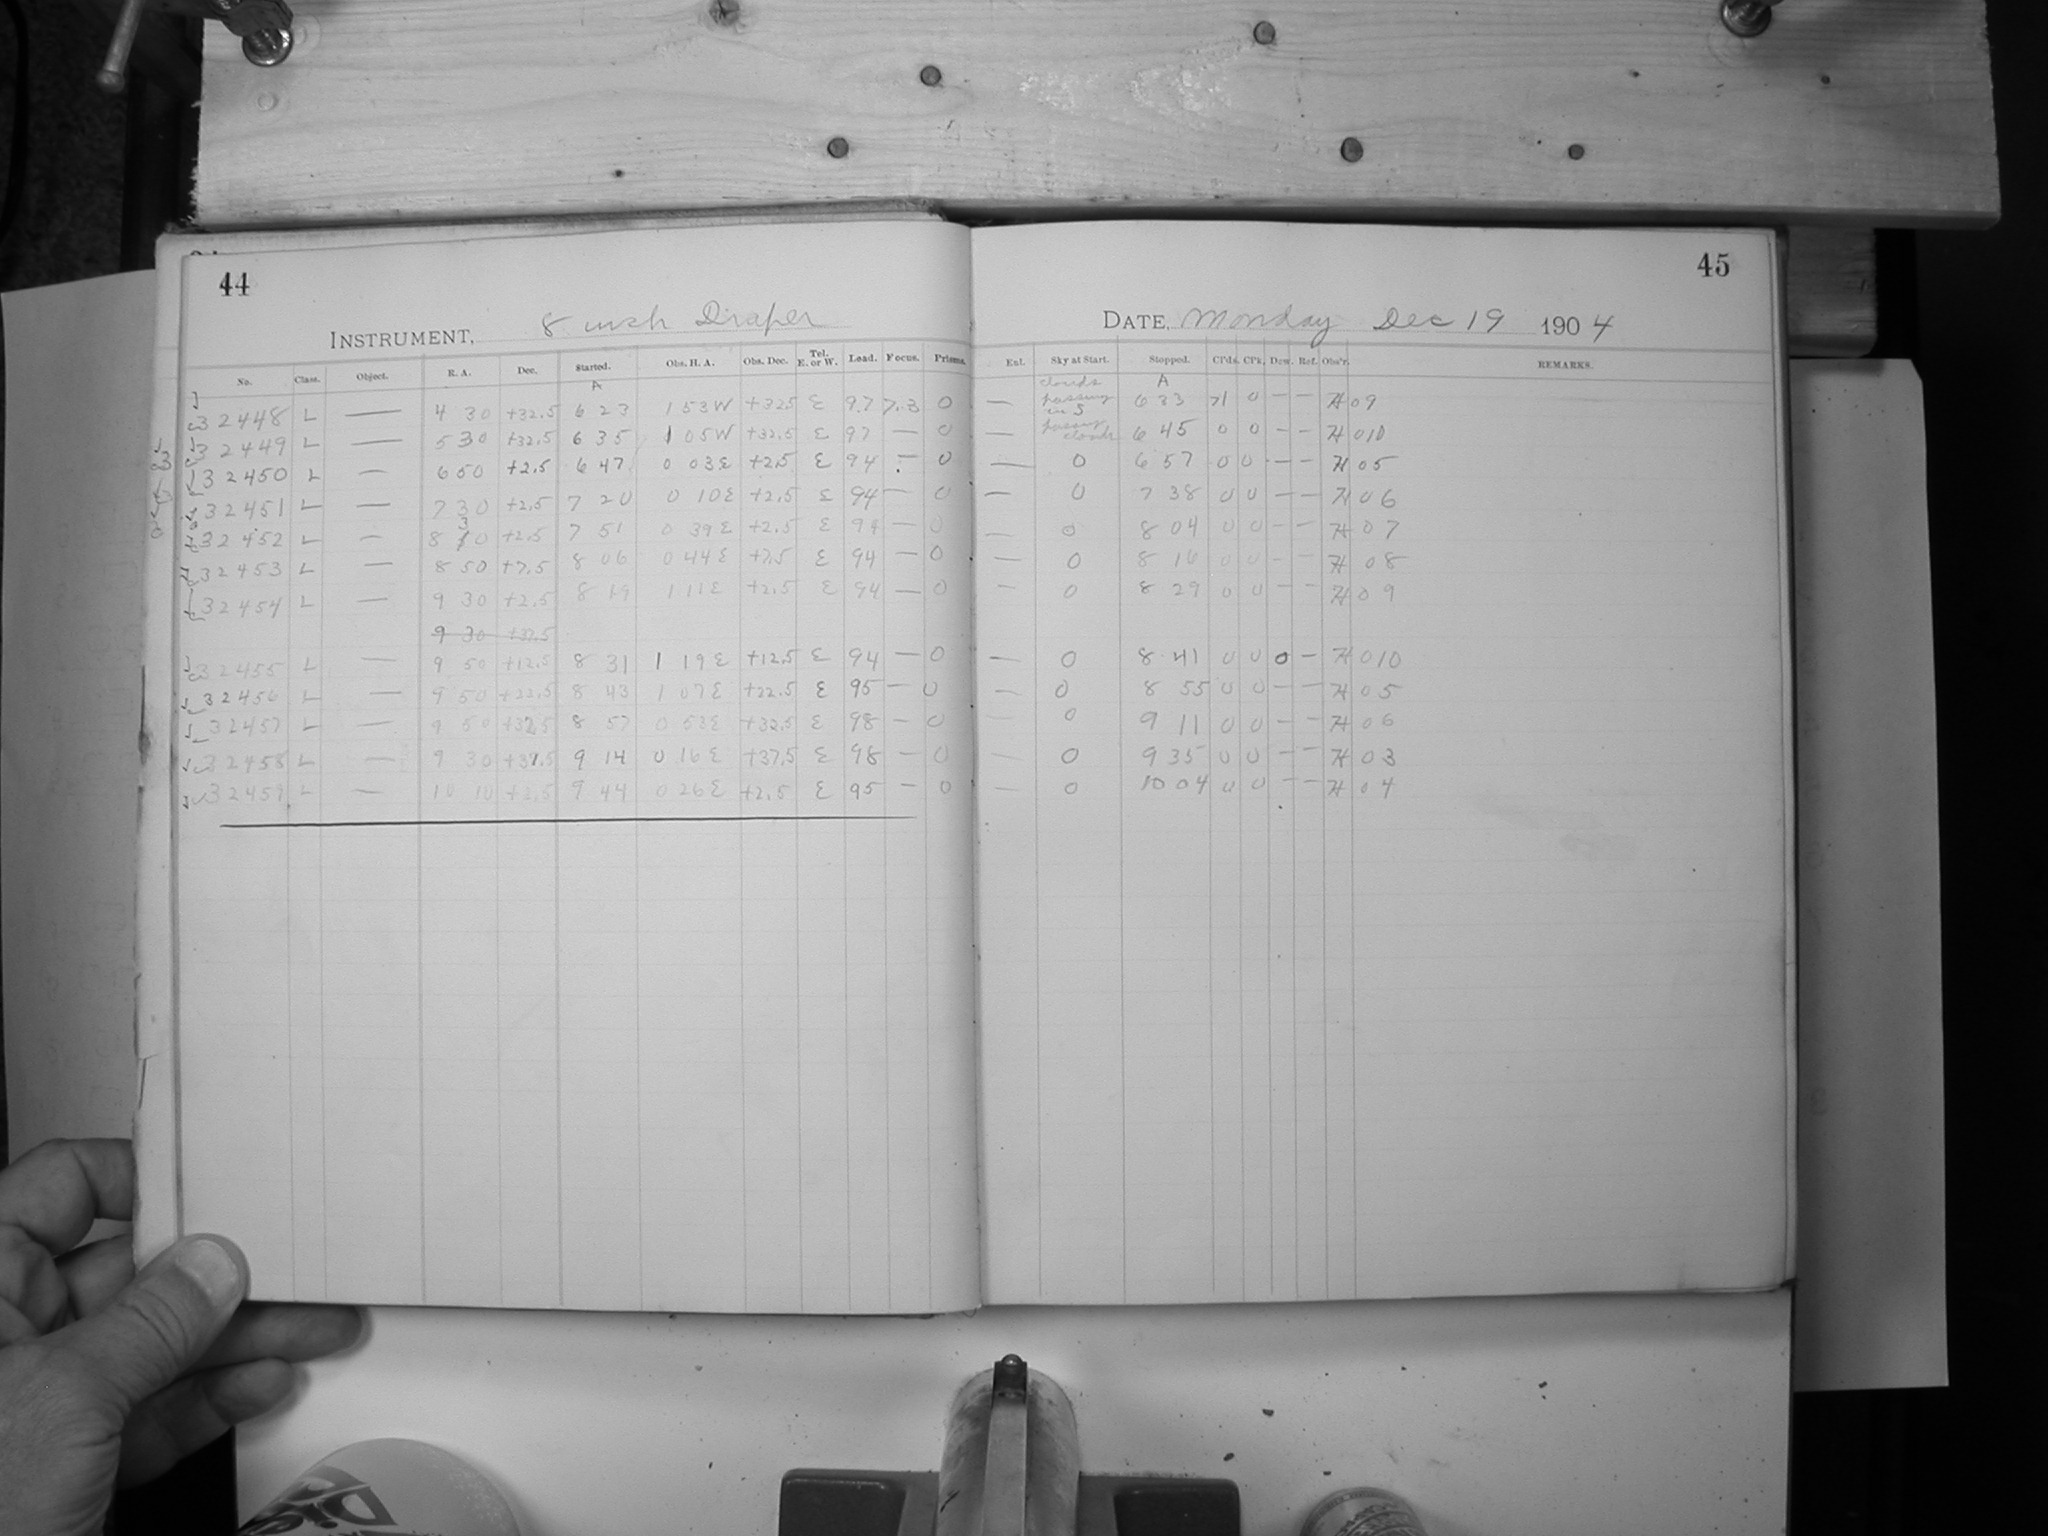 44
INSTRUMENT, 8 inch Draper
No. Class. Object. R. A. Dec. Started. Obs. H. A. Obs. Dec. Tel. E. or W. Lead. Focus. Prisms.
A
32448 L — 4 30 +32.5 6 23 1 53W +32.5 E 97 7.3 0
32449 L — 5 30 +32.5 6 35 1 05W +32.5 E 97 — 0
32450 L — 6 50 +2.5 6 47 0 03E +2.5 E 94 — 0
32451 L — 7 30 +2.5 7 20 0 10E +2.5 E 94 — 0
32452 L — 8 30 +2.5 7 51 0 39E +2.5 E 94 — 0
32453 L — 8 50 +7.5 8 06 0 44E +7.5 E 94 — 0
32454 L — 9 30 +2.5 8 19 1 11E +2.5 E 94 — 0
9 30 +32.5
32455 L — 9 50 +12.5 8 31 1 19E +12.5 E 94 — 0
32456 L — 9 50 +22.5 8 43 1 07E +22.5 E 95 — 0
32457 L — 9 50 +32.5 8 57 0 53E +32.5 E 98 — 0
32458 L — 9 30 +37.5 9 14 0 16E +37.5 E 98 — 0
32459 L — 10 10 +2.5 9 44 0 26E +2.5 E 95 — 0
45
DATE, Monday Dec 19 1904
Ent. Sky at Start. Stopped. Cl'ds. Cl'k. Dew. Ref. Obs'r. REMARKS.
A
— clouds passing in S 6 33 71 0 — — H 09
— passing clouds 6 45 0 0 — — H 010
— 0 6 57 0 0 — — H 05
— 0 7 38 0 0 — — H 06
— 0 8 04 0 0 — — H 07
— 0 8 16 0 0 — — H 08
— 0 8 29 0 0 — — H 09
— 0 8 41 0 0 0 — H 010
— 0 8 55 0 0 — — H 05
— 0 9 11 0 0 — — H 06
— 0 9 35 0 0 — — H 03
— 0 10 04 0 0 — — H 04